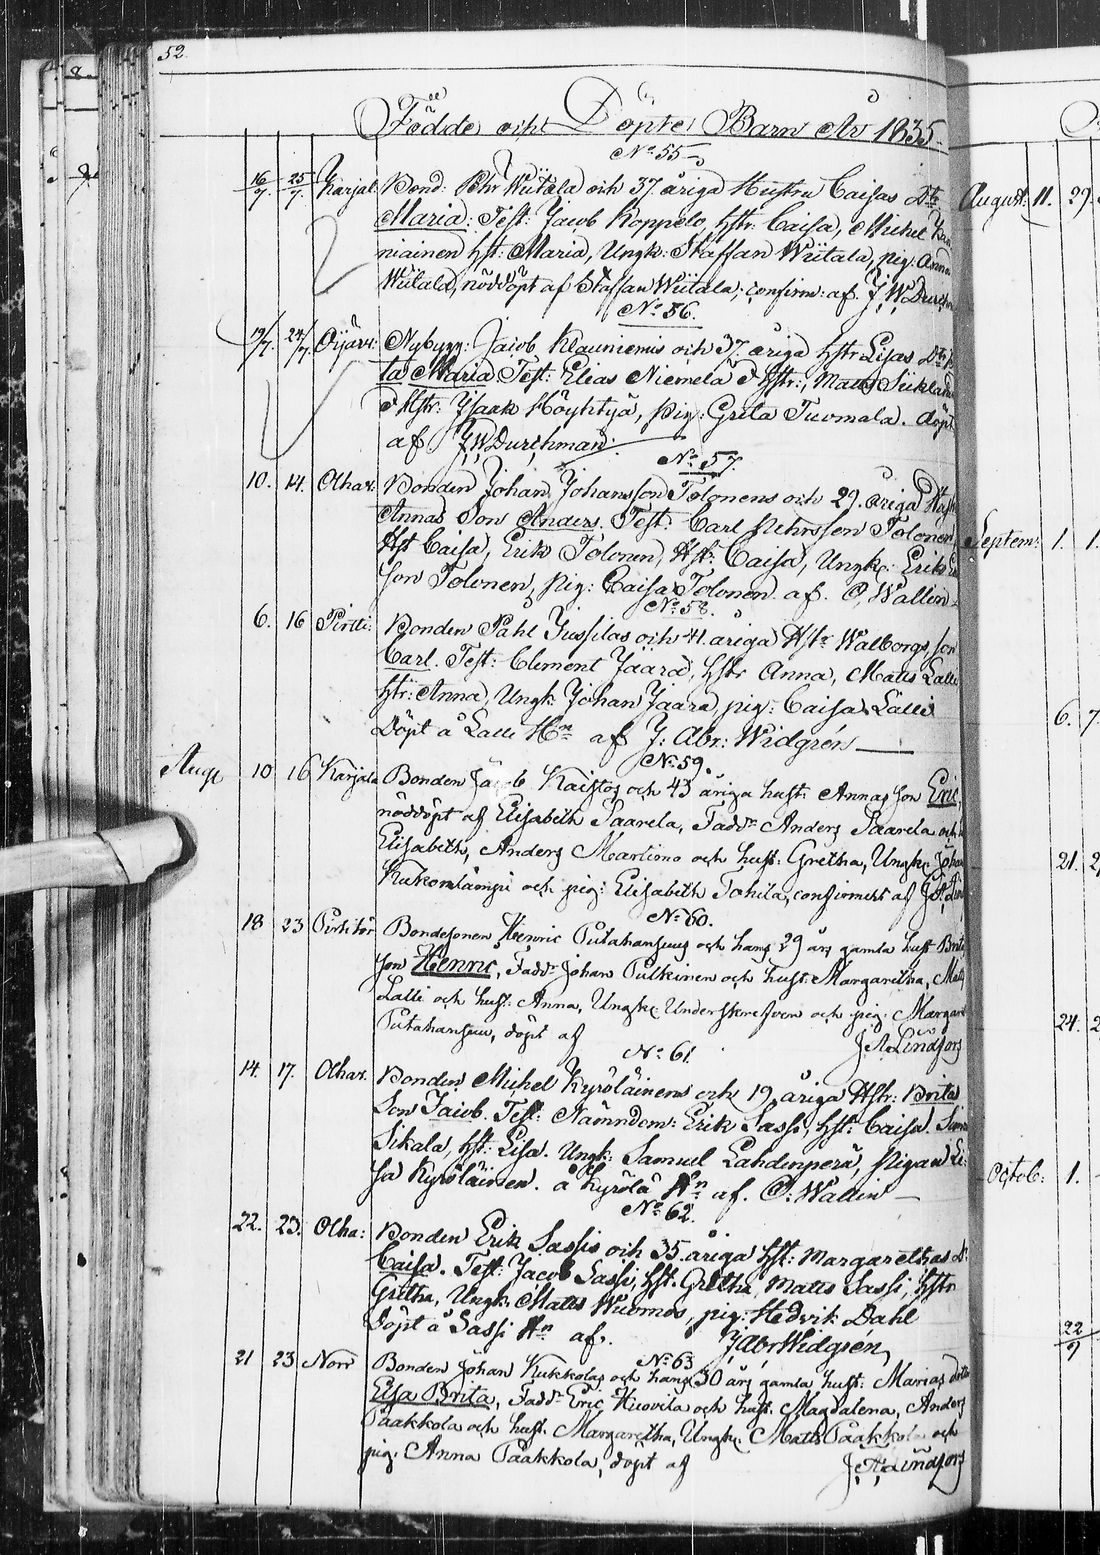 52.
Födde och Döpte Barn År 1835.
No 55
16/7. 25/7. Karjal: Bond: Pehr Wiitala och 37 åriga Hustru Caisas Dtr
Maria: Test: Jacob Koppelo, hstr: Caisa, Michel
niainen hst: Maria, Ungk: Staffan Wiitala, pig: Anna
Wiitala, nöddöpt af Staffan Wiitala, confirm: af J.W. Durchm
No 56.
19/7. 24/7. Oijärv: Nybygg: Jacob Klauniemis och 37 åriga hstr Lisas Dtr
ta Maria Test: Elias Niemelä d hstr:, Matts Siikla
d Hstr: Isaak Höyhtyä, pig: Greta Tuomala. döpt
af J.W. Durchman.
No 57.
10. 14. Olhar. Bonden Johan Johansson Tolonens och 29 åriga Hust
Annas Son Anders. Test: Carl Pehrsson Tolonen
Hst Caisa, Erik Tolonen, Hst: Caisa, Ungk: Erik
son Tolonen, pig: Caisa Tolonen af. O. Wallin
No 58.
6. 16 Pirtti: Bonden Påhl Jussilas och 41 åriga Hstr Walborgs son
Carl. Test: Clement Jaara, hstr Anna, Matts Lalli
hstr: Anna, Ungk: Johan Jaara, pig: Caisa Lalli
Döpt å Lalli Hn af J: Abr: Widgrén
No 59.
Aug 10 16 Karjala Bonden Jacob Kaistos och 43 åriga hust: Annas son Eric,
nöddöpt af Elisabeth Saarela, Faddr Anders Saarela och
Elisabeth, Anders Martimo och hust: Gretha, Ungk: Johan
Kukonlampi och pig: Elisabeth Tohila, confirmert af J.A. Lind
No 60.
18 23 Bondesonen Henric och hans 29 års gamla hust Brita
son Henric, Faddr Johan Pulkinen och hust: Margaretha, Matts
Lalli och hust: Anna, Ungk: Underskrefven och pig: Margar
döpt af J A Lindfors
No 61.
14. 17. Olhar. Bonden Michel Kyröläinens och 19 åriga Hstr: Brita
Son Jacob. Test: Nämndem: Erik Sassi, hst: Caisa. Simo
Sikala, hst: Lisa. Ungk: Samuel Lahdenperä, Pigan Li-
sa Kyröläinen. å Kyrölä Hn af. O: Wallin
No 62.
22. 23. Olha: Bonden Erik Sassis och 35 åriga hst: Margarethas D.
Caisa. Test: Jacob Sassi, hst: Gretha, Matts Sassi, hstr
Gretha, Ungk: Matts Wuornos, pig: Hedvik Dahl
Döpt å Sassi Hn af. J Abr Widgrén
No 63
21 23 Norr Bonden Johan Kukkolas och hans 30 års gamla hust: Marias dotter
Elsa Brita, Faddr Eric Huovila och hust: Magdalena, Anders
Paakkola och hust. Margaretha, Ungk: Matts Paakkola och
pig: Anna Paakkola, döpt af J.A. Lindfors
August: 11. 29.
Septem: 1. 1.
6. 7.
21. 2
24. 2
Octob: 1.
22/9